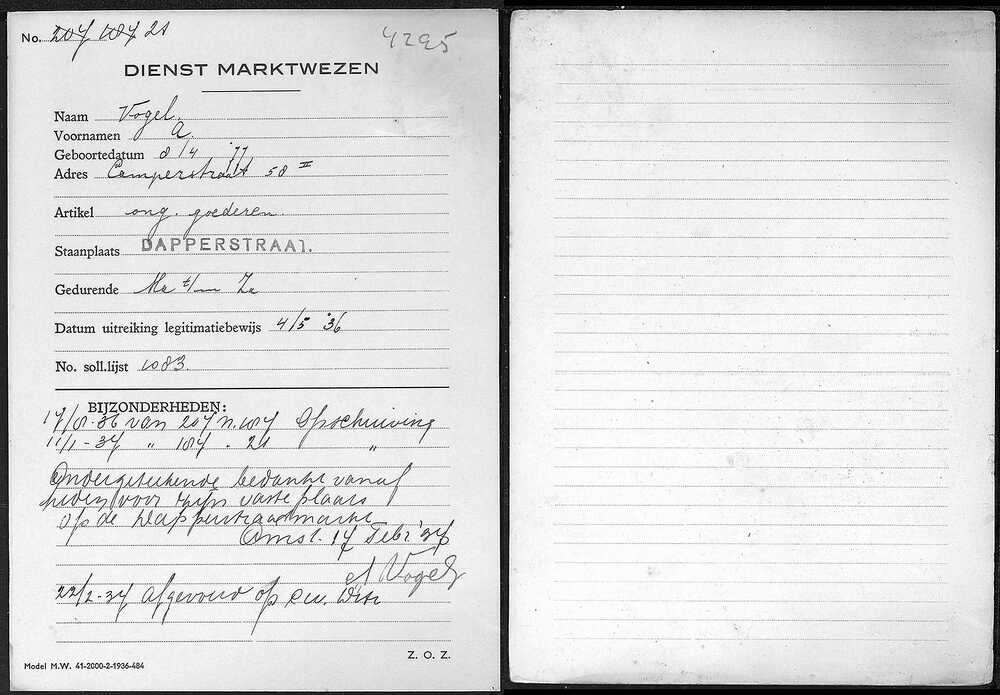 No. 207 187 21
4295
DIENST MARKTWEZEN
Naam Vogel.
Voornamen A.
Geboortedatum 8/4 '77
Adres Camperstraat 58 II
Artikel ong. goederen.
Staanplaats DAPPERSTRAAT.
Gedurende Ma t/m Za
Datum uitreiking legitimatiebewijs 4/5 '36
No. soll.lijst 1083.
BIJZONDERHEDEN:
17/8-36 van 207 n. 187 Opschuiving
11/1-37 " 187 " 21 "
Ondergetekende bedankt vanaf
heden voor zijn vaste plaats
op de Dapperstraatmarkt
Amst. 17 Febr '37
A Vogel
22/2-37 afgevoerd op
Z. O. Z.
Model M.W. 41-2000-2-1936-484